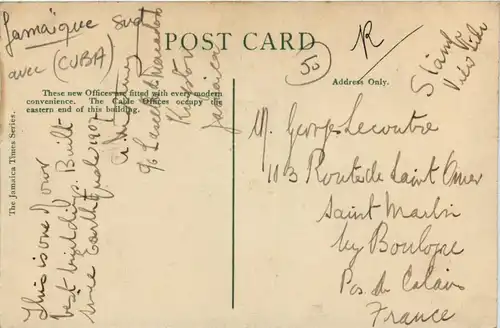 Jamaïque Sud
avec (CUBA)
POST CARD
50
R
Stamp
Address Only.
These new Offices are fitted with every modern
convenience. The Cable Offices occupy the
eastern end of this building.
The Jamaica Times Series.
This is one of our
best buildings. Built
since Earthquake 1907
c/o Lascelles
Kingston
Jamaica
M. Georges Lecoutre
113 Route de Saint Omer
Saint Martin
by Boulogne
Pas de Calais
France